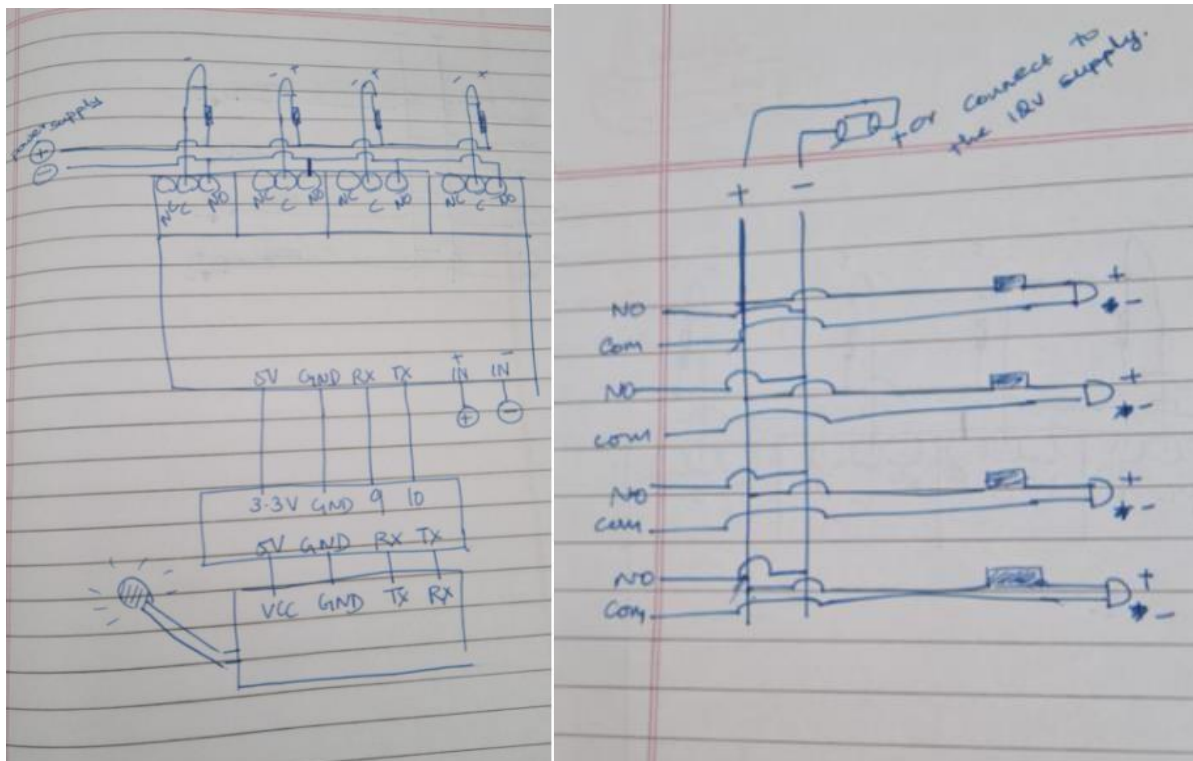 power supply
+
-
- - + - + - +
NC C NO NC C NO NC C NO NC C NO
5V GND RX TX + IN - IN
+ -
3.3V GND 9 10
5V GND RX TX
VCC GND TX RX
+ or connect to
the 12V supply.
+ -
NO +
-
Com
NO +
-
Com
NO +
-
Com
NO +
-
Com